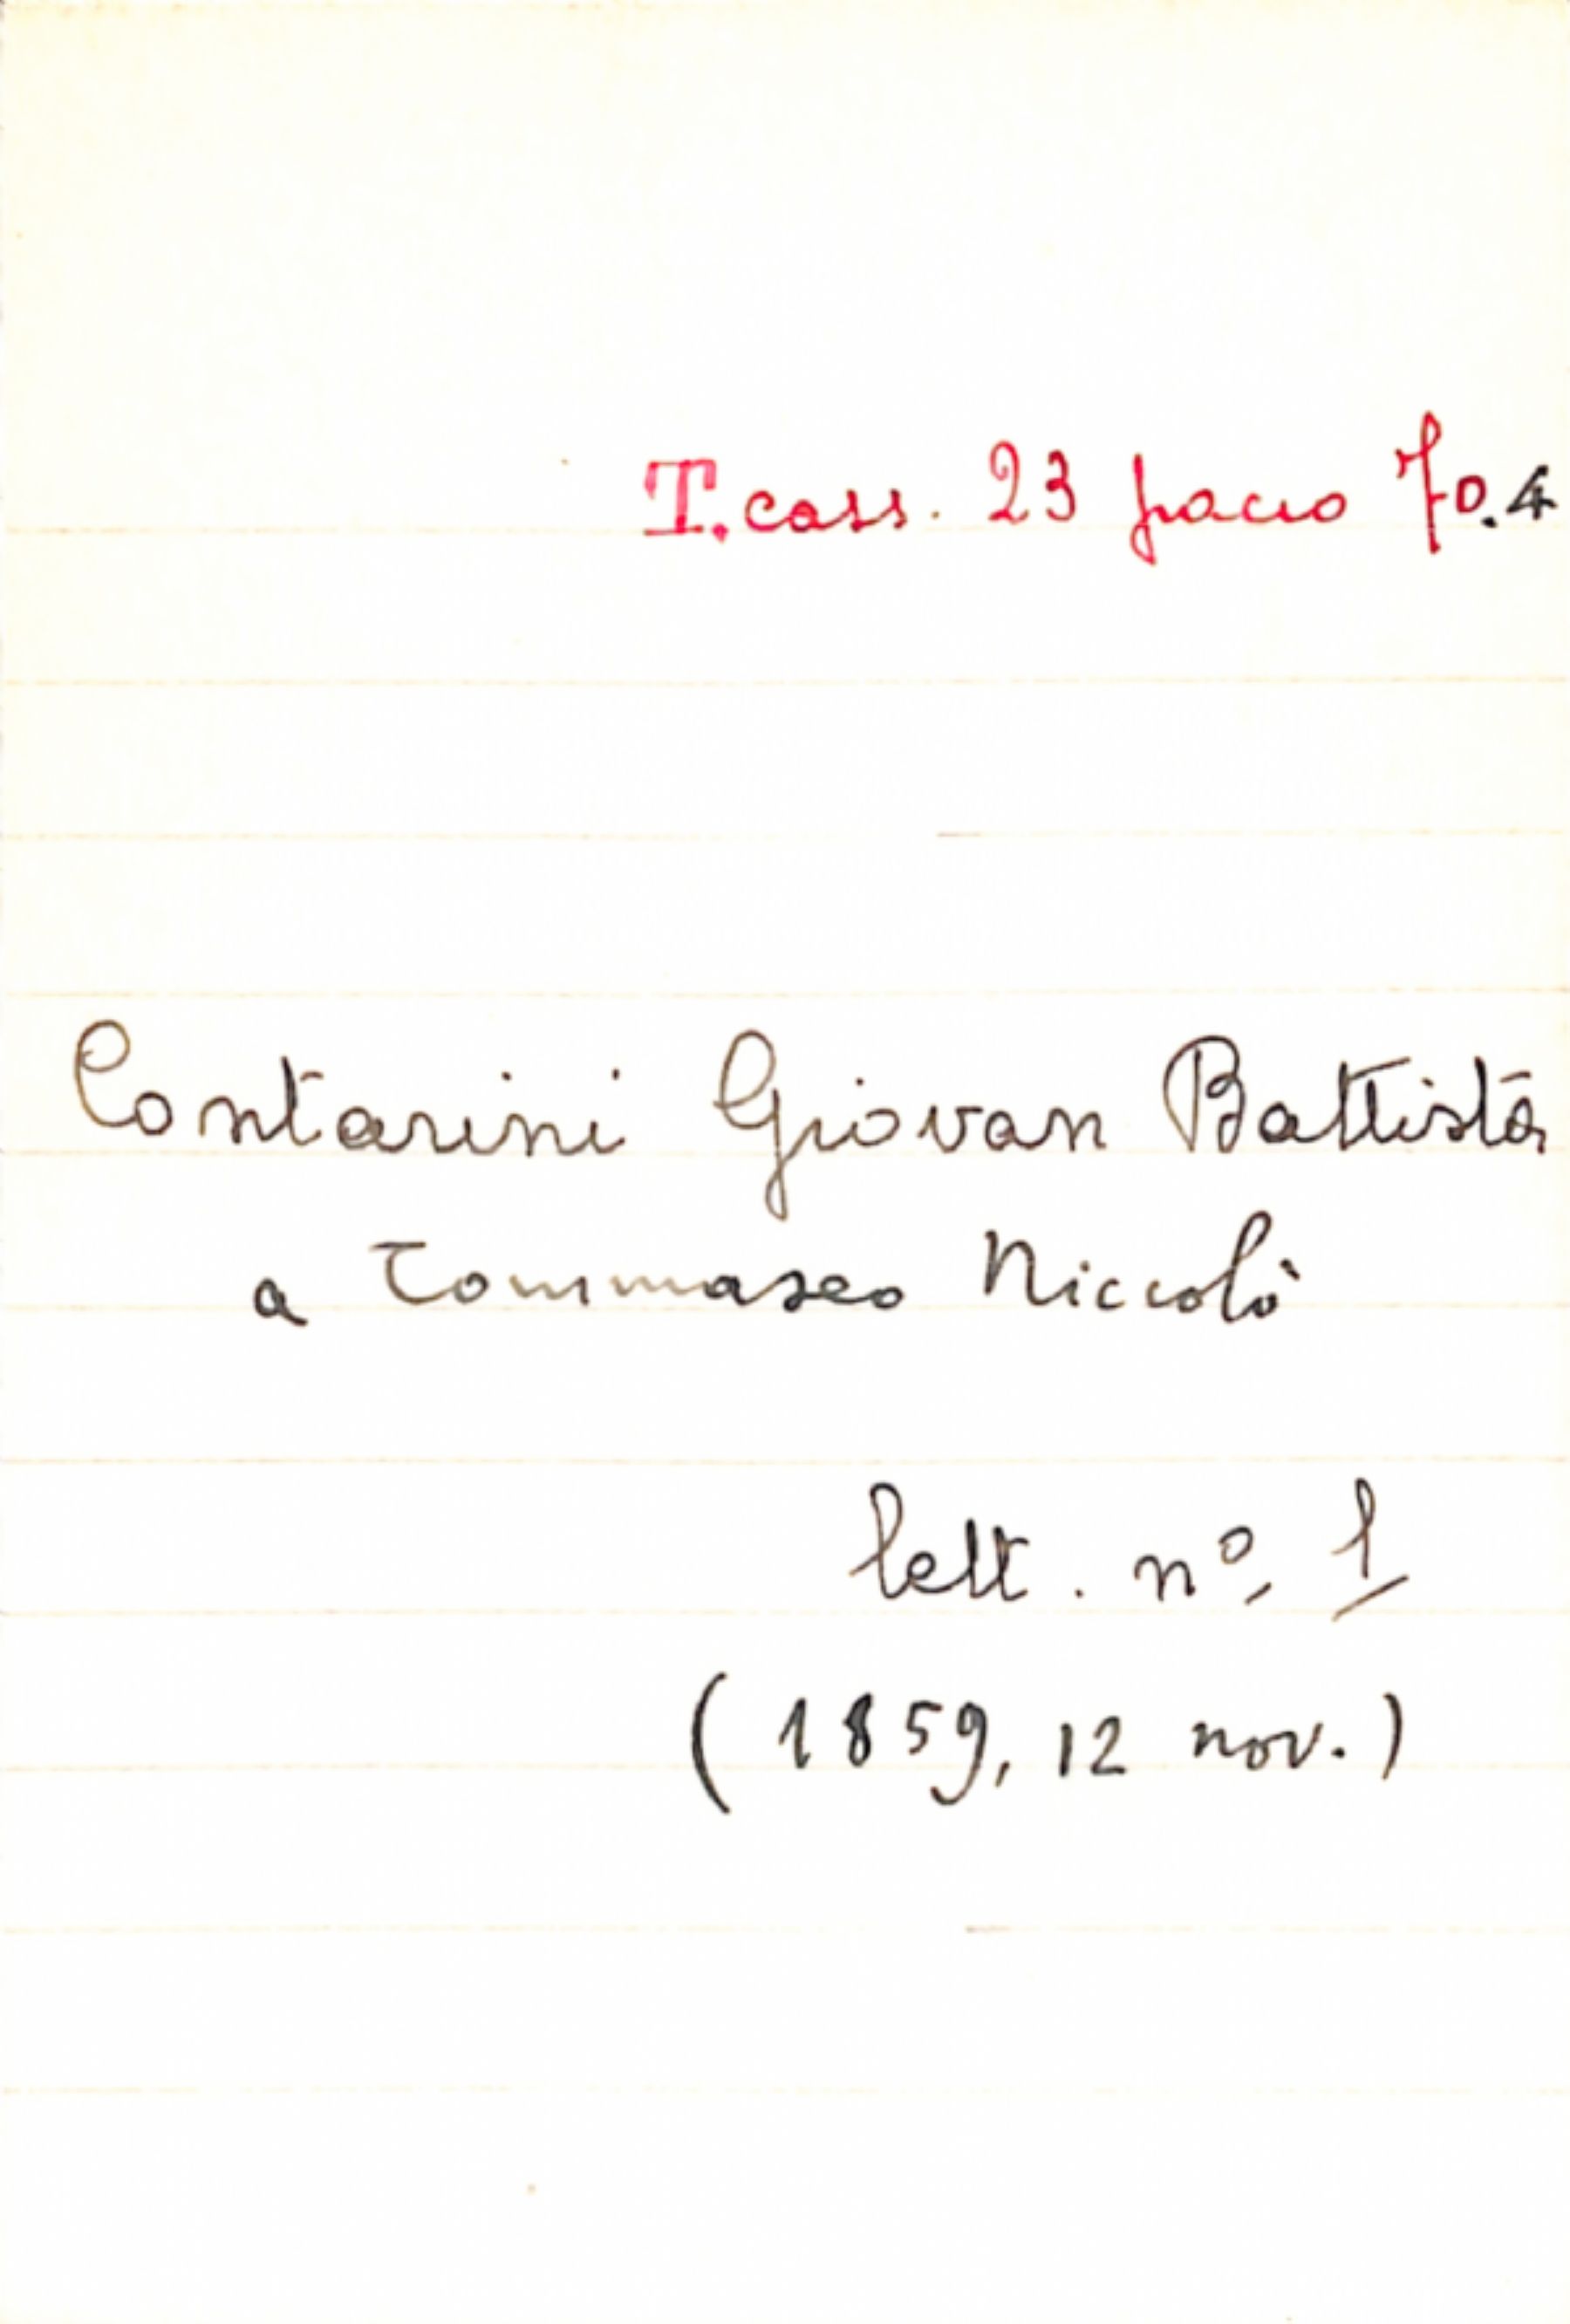 T. cass. 23 pacco 70.4
Contarini Giovan Battista
a Tommaseo Niccolò
lett. nº. 1
(1859, 12 nov.)